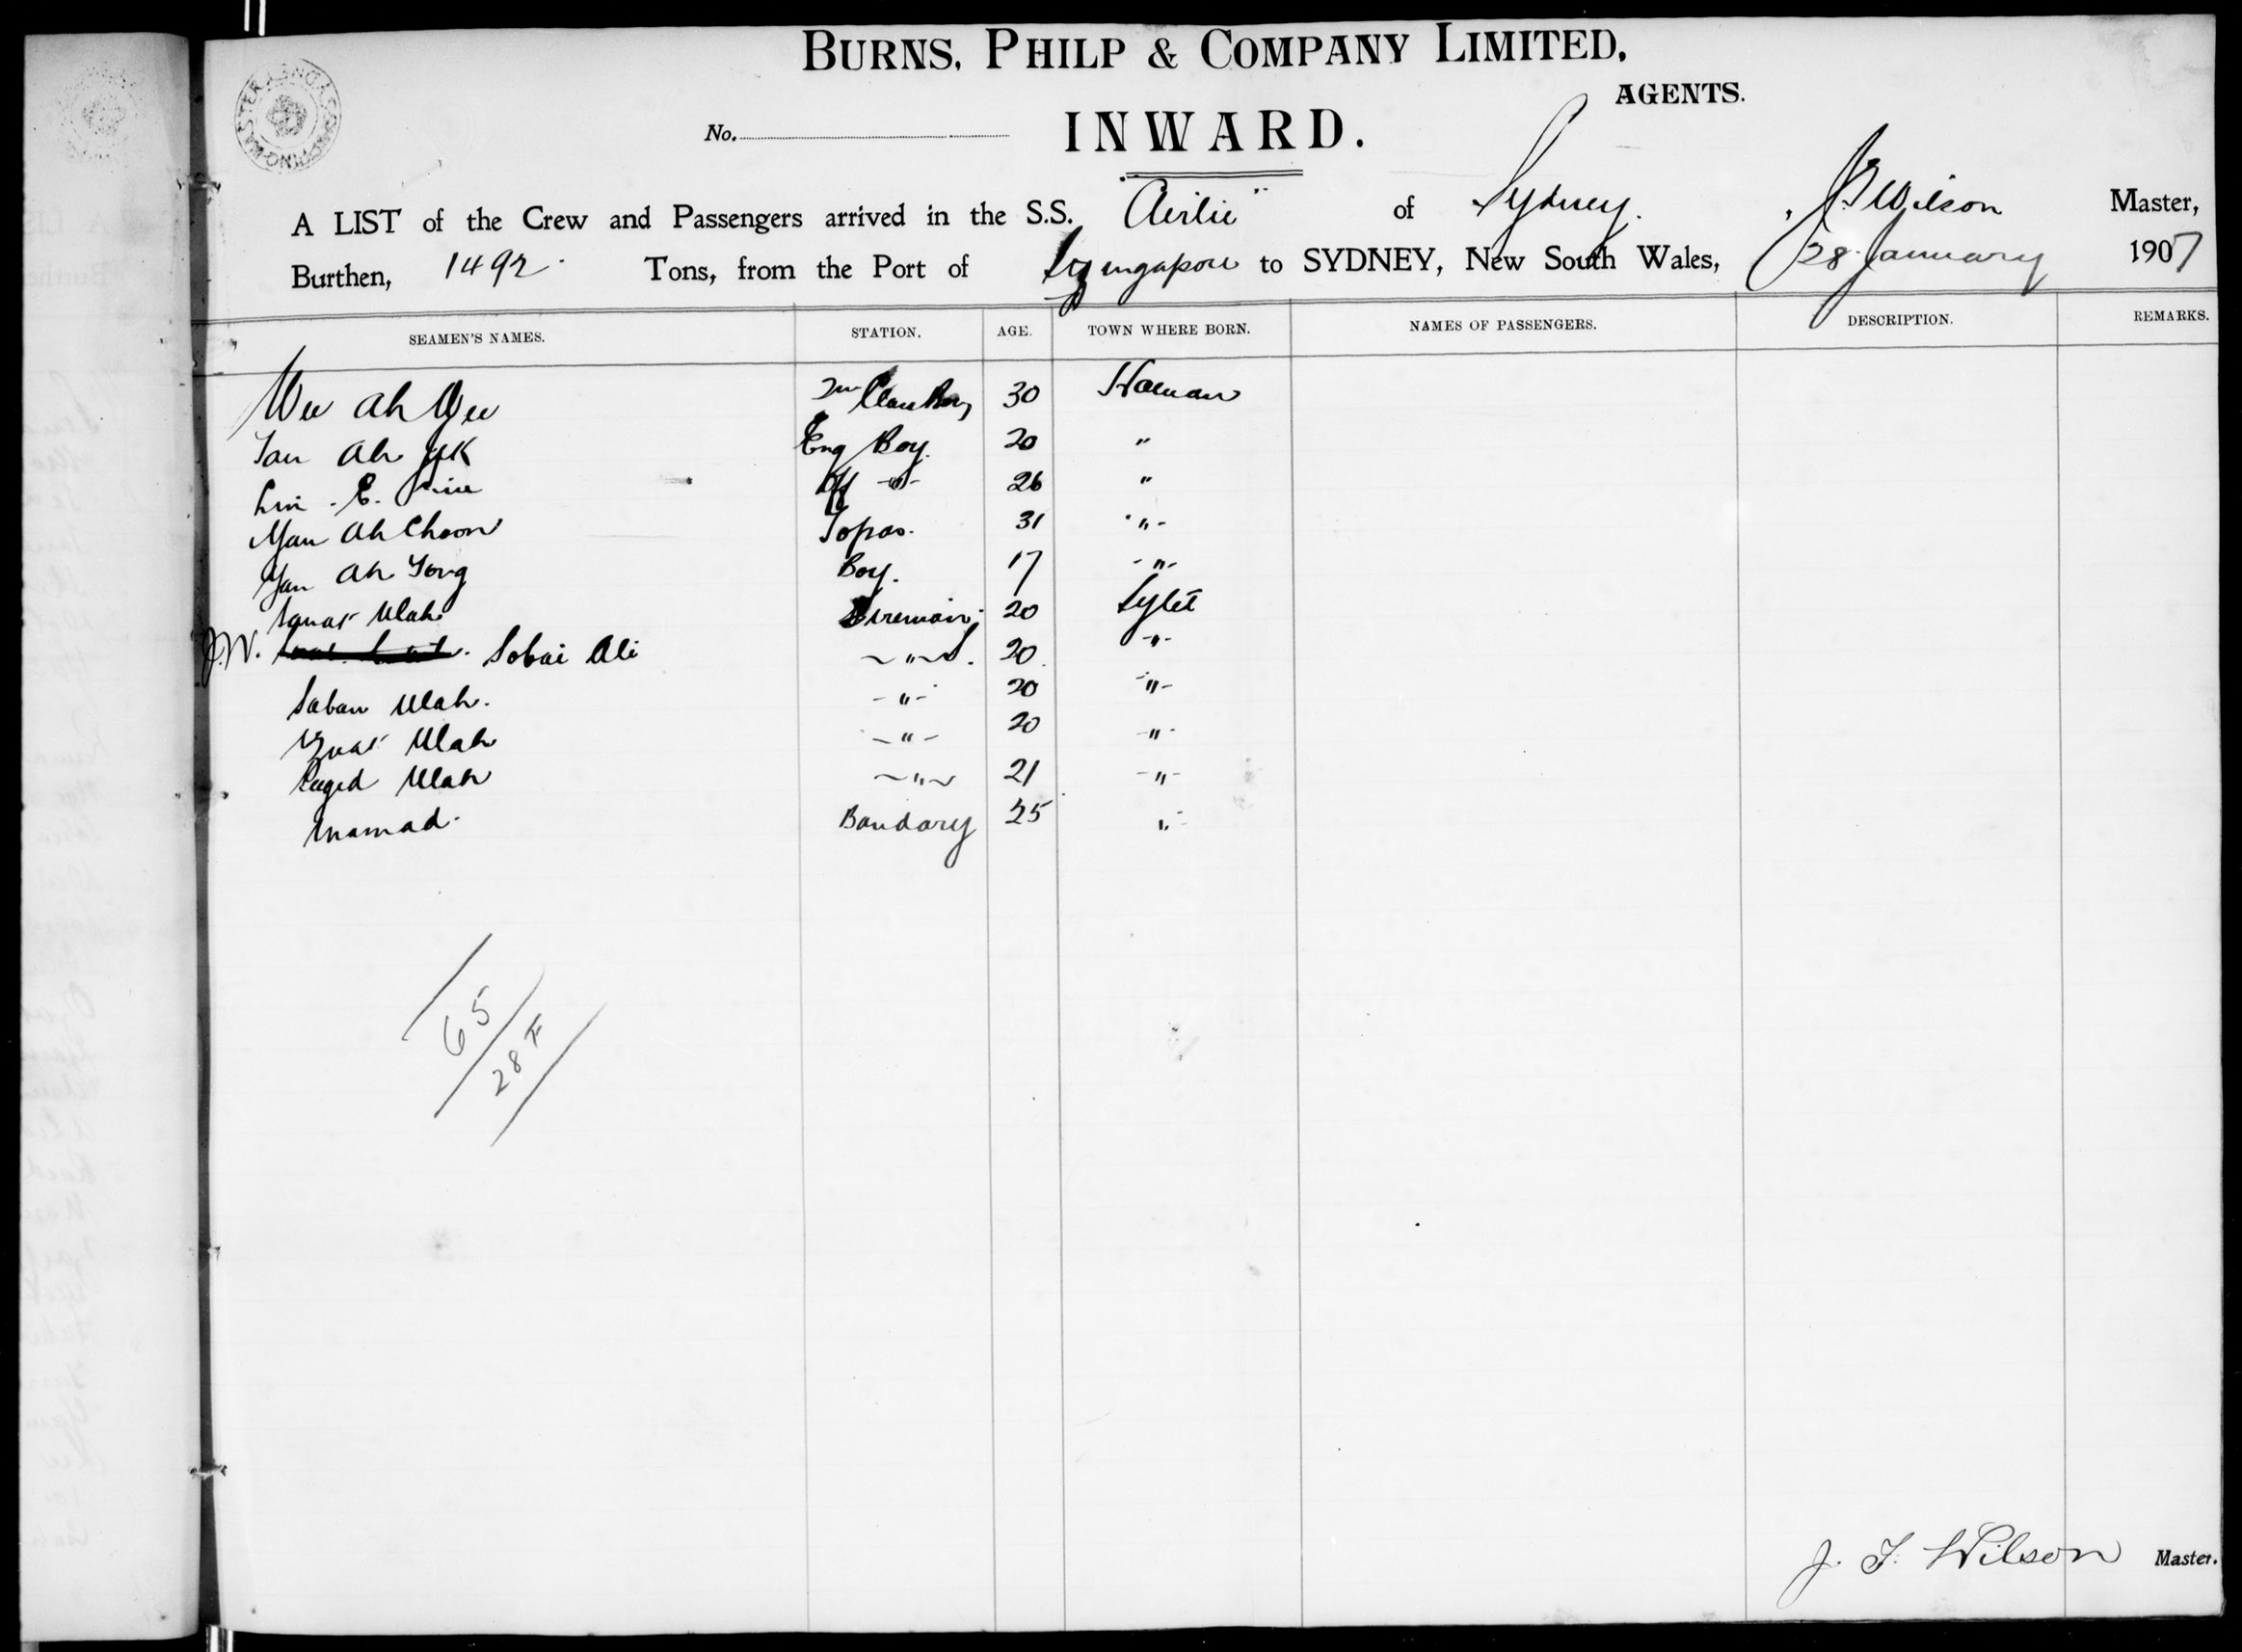 BURNS, PHILP & COMPANY LIMITED,
AGENTS.
No. INWARD.
A LIST of the Crew and Passengers arrived in the S.S. "Airlie" of Sydney, Wilson Master,
Burthen, 1492 Tons, from the Port of Syngapore to SYDNEY, New South Wales, 28 January 1907
SEAMEN'S NAMES. STATION. AGE. TOWN WHERE BORN. NAMES OF PASSENGERS. DESCRIPTION. REMARKS.
Wee Ah 30
Tan Ah Eng Boy. 20 "
Lim E. 26 "
Ah Choon Topas. 31 "
Yan Ah Tong Boy. 17 "
Ulah Fireman 20 Sylet
J.W. Sobai Ali " 20 "
Saban Ulah. " 20 "
Ulah " 20 "
Ulah " 21 "
Mamad. Bandary 25 "
65
28 F
J. F. Wilson Master.